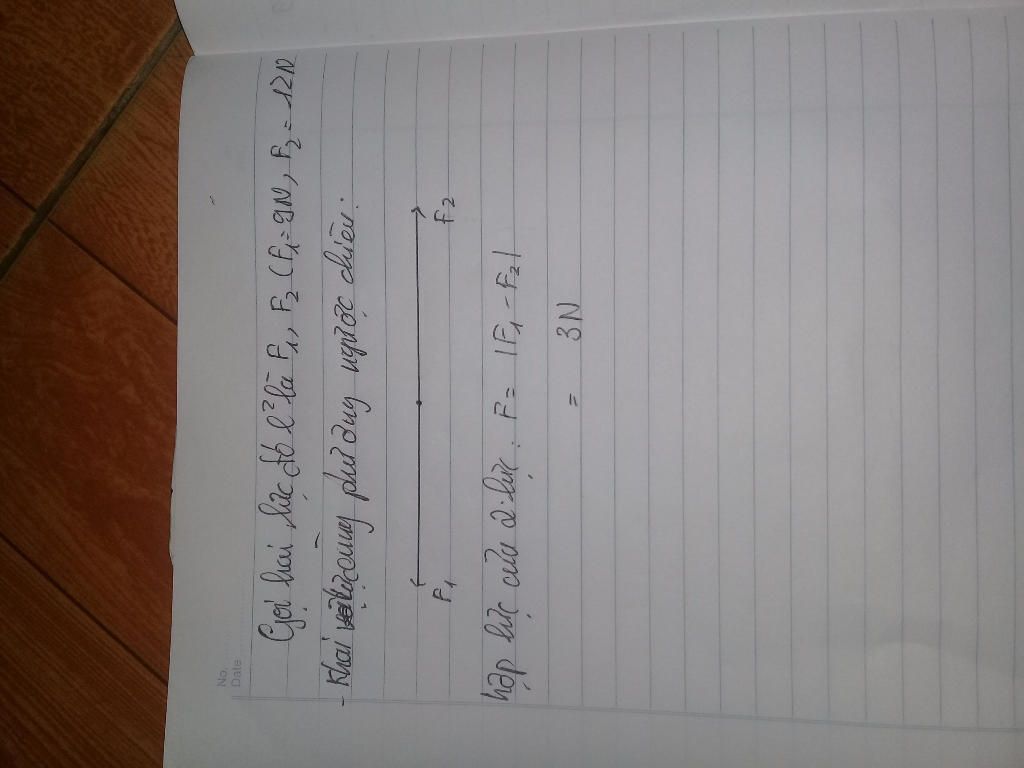 No
Date
Gọi hai lực đó l² là F₁, F₂ (F₁=9N, F₂=12N
- Khi cùng phương ngược chiều:
F₁ F₂
hợp lực của 2 lực: F = |F₁ - F₂|
= 3N